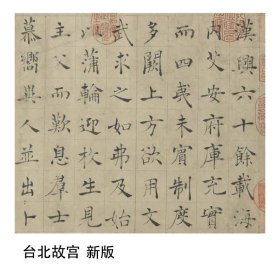 漢興六十餘載海
内艾安府庫充實
而四夷未賓制度
多闕上方欲用文
武求之如弗及始
以蒲輪迎枚生見
主父而歎息羣士
慕嚮異人並出卜
台北故宫 新版